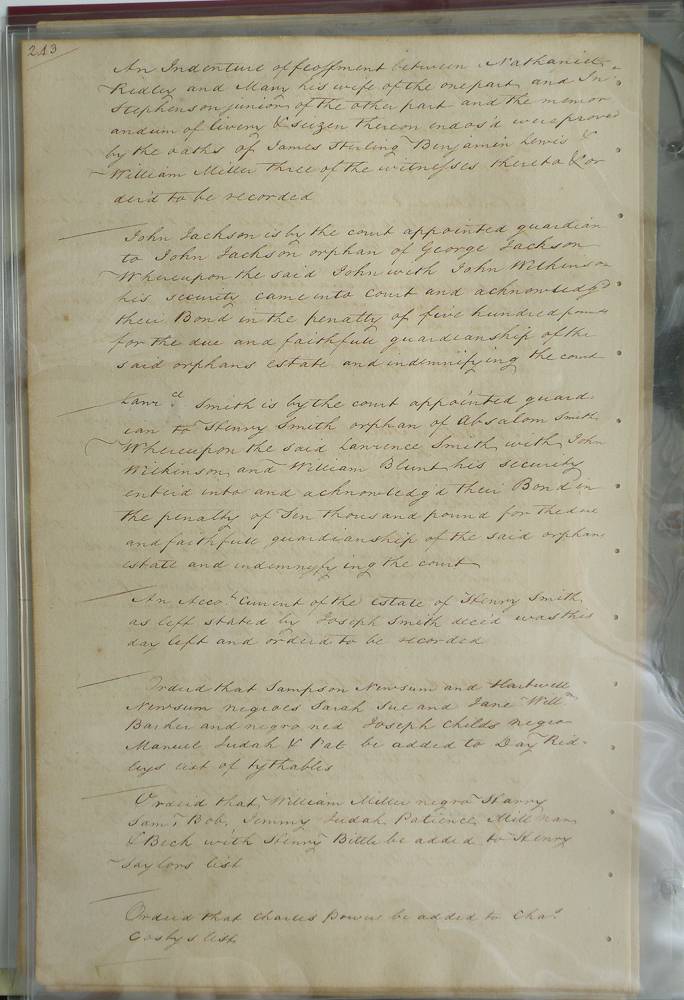 213
An Indenture of feoffment between Nathaniel
Ridley and Mary his wife of the one part and Jn
Stephenson junior of the other part and the memor
andum of livery & seizen thereon endos'd were proved
by the oaths of James Sterling Benjamin Lewis &
William Miller three of the witnesses thereto & or
der'd to be recorded
John Jackson is by the court appointed guardian
to John Jackson orphan of George Jackson
Whereupon the said John with John Wilkinson
his security came into court and acknowledg'd
their Bond in the penalty of five hundred pounds
for the due and faithfull guardianship of the
said orphans estate and indemnifying the court
Lawr.ce Smith is by the court appointed guard
ian to Henry Smith orphan of Absalom Smith
Whereupon the said Lawrence Smith with John
Wilkinson and William Blunt his security
enter'd into and acknowledg'd their Bond in
the penalty of Ten thousand pound for the due
and faithfull guardianship of the said orphans
estate and indemnifying the court
An Acco.t Current of the estate of Henry Smith
as left stated by Joseph Smith dece'd was this
day left and order'd to be recorded
Order'd that Sampson Newsum and Hartwell
Newsum negroes Sarah Sue and Jane Will.m
Barker and negro ned Joseph Childs negro
Manuel Judah & Pat be added to Day Rid-
leys list of tythables
Order'd that William Miller negro Harry
Sam.l Bob, Jemmy Judah Patience Mill
& Beck with Henry Bittle be added to Henry
Taylors list
Order'd that Charles Bowers be added to Cha.s
Cosbys list